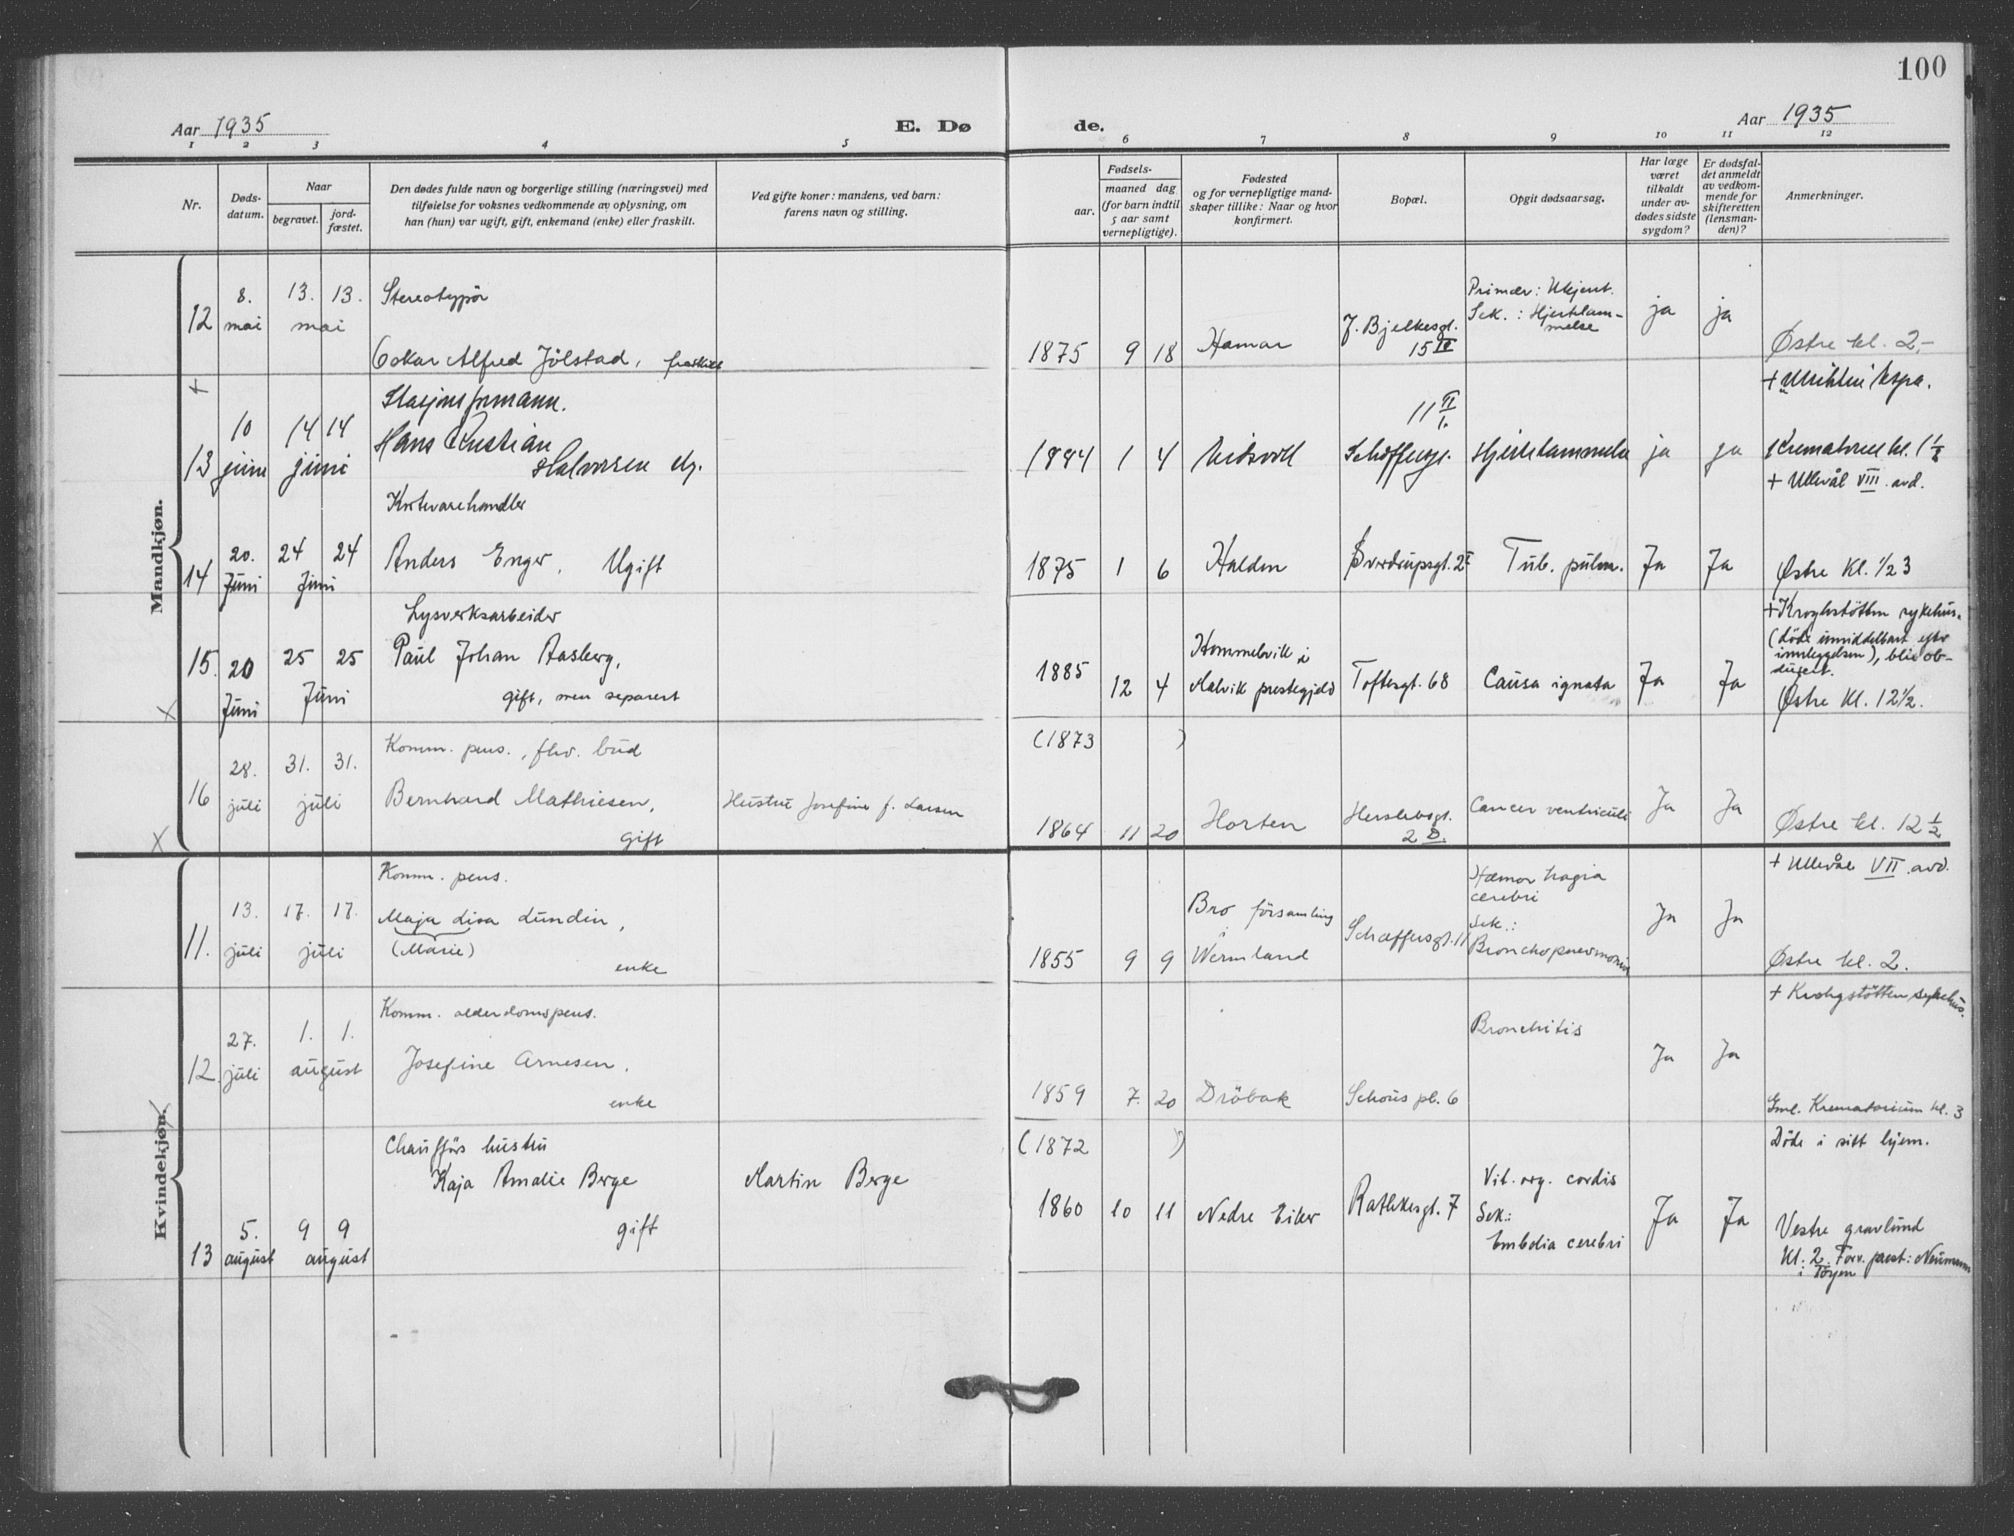 100
Aar 1935
E. Dø
de.
Aar 1935
1 2 3 4 5 6 7 8 9 10 11 12
Nr.
Døds-
datum.
Naar
begravet.
jord-
fæstet.
Den dødes fulde navn og borgerlige stilling (næringsvei) med
tilføielse for voksnes vedkommende av oplysning, om
han (hun) var ugift, gift, enkemand (enke) eller fraskilt.
Ved gifte koner: mandens, ved barn:
farens navn og stilling.
Fødsels-
aar.
maaned dag
(for barn indtil
5 aar samt
vernepligtige).
Fødested
og for vernepligtige mand-
skaper tillike: Naar og hvor
konfirmert.
Bopæl.
Opgit dødsaarsag.
Har læge
været
tilkaldt
under av-
dødes sidste
sygdom?
Er dødsfal-
det anmeldt
av vedkom-
mende for
skifteretten
(lensman-
den)?
Anmerkninger.
Mandkjøn.
12
8.
mai
13. 13.
mai
Stereotypør
Oskar Alfred Jølstad, fraskilt
1875 9 18
Hamar
J. Bjelkesgt.
15 IV
Primær: Ukjent.
Sek.: Hjertelam-
melse
ja
ja
Østre kl. 2.-
13
10
juni
14 14
juni
Stasjonsformann.
Hans Kristian
Halvorsen
1884 1 4
Eidsvoll
11 II
Hjertelammelse
ja
ja
Krematoriet kl. 1 1/2
14
20.
Juni
24 24
Juni
Kortevarehandler
Anders Enger, Ugift
1875 1 6
Halden
Sverdrupsgt. 2 I
Tub. pulm.
Ja
Ja
+ Ullevål VIII avd.
Østre Kl. 1/2 3
15.
20
Juni
25 25
Juni
Lysverksarbeider
Paul Johan Aasberg,
gift, men separert
1885 12 4
Hommelvik i
Malvik prestegjeld
Toftesgt. 68
Causa ignota
Ja
Ja
+ Kroghstøtten sykehus.
(døde umiddelbart efter
innleggelsen), blir ob-
dusert.
Østre Kl. 12 1/2.
16
28.
juli
31. 31.
juli
Komm. pens., fhv. bud
Bernhard Mathiesen,
gift
Hustru Josefine f. Larsen
(1873 )
1864 11 20
Horten
Herslebsgt.
2 D.
Cancer ventriculi
Ja
Ja
Østre kl. 12 1/2
Kvindekjøn.
11.
13.
juli
17. 17.
juli
Komm. pens.
Maja Lisa Lundin,
(Marie)
enke
1855 9 9
Bro församling
i
Wermland
Schæffersgt. 11
Hæmorhagia
cerebri
Sek.:
Bronchopneumonia
Ja
Ja
+ Ullevål VII avd.
Østre kl. 2.
12.
27.
juli
1. 1.
august
Komm. alderdomspens.
Josefine Arnesen,
enke
1859 7. 20
Drøbak
Schous pl. 6
Bronchitis
Ja
Ja
+ Krohgstøtten sykehus.
Gml. Krematorium kl. 3
13
5.
august
9 9
august
Chaufførs hustru
Kaja Amalie Berge
gift
Martin Berge
(1872 )
1860 10 11
Nedre Eiker
Rathkesgt. 7
Vit. org. cordis
Sek:
Embolia cerebri
Ja
Ja
Døde i sitt hjem.
Vestre gravlund
Kl. 2. Forr. prest: Neumann
i Tøyen